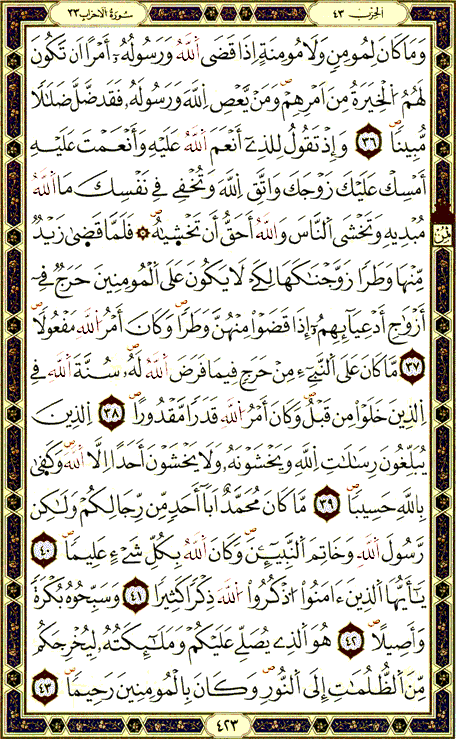 الحزب ٤٣
سورة الاحزاب ٣٣
وَمَا كَانَ لِمُومِنٖ وَلَا مُومِنَةٍ اِذَا قَضَى اَللَّهُ وَرَسُولُهُۥٓ أَمْراً اَن تَكُونَ
لَهُمُ اُلْخِيَرَةُ مِنَ اَمْرِهِمْۖ وَمَنْ يَّعْصِ اِللَّهَ وَرَسُولَهُۥ فَقَد ضَّلَّ ضَلَٰلاٗ
مُّبِيناٗۖ ٣٦ وَإِذْ تَقُولُ لِلذِےٓ أَنْعَمَ اَللَّهُ عَلَيْهِ وَأَنْعَمْتَ عَلَيْهِ
أَمْسِكْ عَلَيْكَ زَوْجَكَ وَاتَّقِ اِللَّهَ وَتُخْفِے فِے نَفْسِكَ مَا اَللَّهُ
مُبْدِيهِ وَتَخْشَى اَلنَّاسَ وَاللَّهُ أَحَقُّ أَن تَخْشَيٰهُۖ ۞ فَلَمَّا قَضَىٰ زَيْدٞ
مِّنْهَا وَطَراٗ زَوَّجْنَٰكَهَا لِكَےْ لَا يَكُونَ عَلَى اَلْمُومِنِينَ حَرَجٞ فِےٓ
أَزْوَٰجِ أَدْعِيَآئِهِمُۥٓ إِذَا قَضَوْاْ مِنْهُنَّ وَطَراٗۖ وَكَانَ أَمْرُ اُللَّهِ مَفْعُولاٗۖ
٣٧ مَّا كَانَ عَلَى اَلنَّبِےٓءِ مِنْ حَرَجٖ فِيمَا فَرَضَ اَللَّهُ لَهُۥۖ سُنَّةَ اَللَّهِ فِے
اِلذِينَ خَلَوْاْ مِن قَبْلُۖ وَكَانَ أَمْرُ اُللَّهِ قَدَراٗ مَّقْدُوراًۖ ٣٨ اِلذِينَ
يُبَلِّغُونَ رِسَٰلَٰتِ اِللَّهِ وَيَخْشَوْنَهُۥ وَلَا يَخْشَوْنَ أَحَداً اِلَّا اَللَّهَۖ وَكَف۪ىٰ
بِاللَّهِ حَسِيباٗۖ ٣٩ مَّا كَانَ مُحَمَّدٌ اَبَآ أَحَدٖ مِّن رِّجَالِكُمْ وَلَٰكِن
رَّسُولَ اَللَّهِ وَخَاتِمَ اَلنَّبِيٓـِٕينَۖ وَكَانَ اَللَّهُ بِكُلِّ شَےْءٍ عَلِيماٗۖ ٤٠
يَٰٓأَيُّهَا اَلذِينَ ءَامَنُواْ اُذْكُرُواْ اُللَّهَ ذِكْراٗ كَثِيراٗ ٤١ وَسَبِّحُوهُ بُكْرَةٗ
وَأَصِيلاًۖ ٤٢ هُوَ اَلذِے يُصَلِّے عَلَيْكُمْ وَمَلَٰٓئِكَتُهُۥ لِيُخْرِجَكُم
مِّنَ اَلظُّلُمَٰتِ إِلَى اَلنُّورِۖ وَكَانَ بِالْمُومِنِينَ رَحِيماٗۖ ٤٣
ثمن
٤٢٣